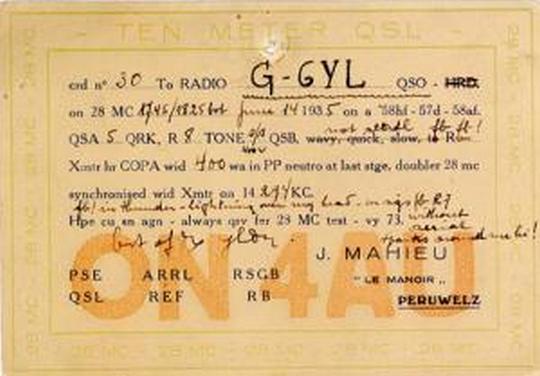 - TEN METER QSL -
crd n° 30 To RADIO G-6YL QSO - HRD.
on 28 MC 1745/1825 June 14 1935 on a 58hf - 57d - 58af.
QSA 5 QRK, R 8 TONE QSB, wavy, quick, slow, not
Xmtr hr COPA wid 400 wa in PP neutro at last stge, doubler 28 mc
synchronised wid Xmtr on 14 KC.
fb! in thunder - lightning over my head - R7
Hpe cu sn agn - always qsv fer 28 MC test - vy 73. without aerial
best of dx
around me hi!
ON4AU
J. MAHIEU
PSE ARRL RSGB
"LE MANOIR"
QSL REF RB
PERUWELZ
28 MC - 28 MC - 28 MC - 28 MC - 28 MC
28 MC
28 MC